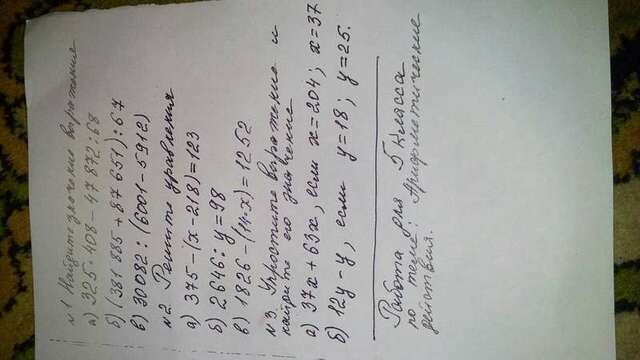 №1 Найдите значение выражения
а) 325·408-47872:68
б) (381885+87651):67
в) 30082:(6001-5912)
№2 Решите уравнения
а) 375-(x-218)=123
б) 2646:y=98
в) 1826-(14·x)=1252
№3. Упростите выражение и
найдите его значение
а) 37x+63x, если x=204; x=37
б) 12y-y, если y=18; y=25.
Работа для 5 класса
по теме: Арифметические
действия.